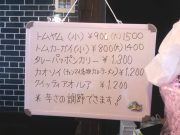 トムヤム(小)¥900(大)1500
トムカーガイ(小)¥800(大)1400
プーパッポンカリー ¥1,300
カオソイ(チェンマイ名物カレーラーメン)¥1,200
クイッティアオ・ルア ¥1,200
※辛さの調節できます!